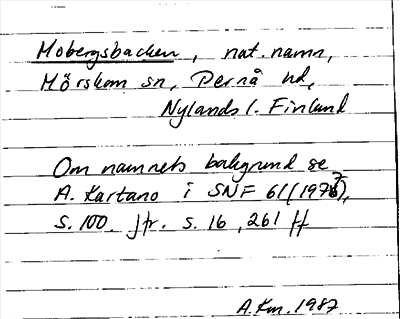 Mobergsbacken, nat.namn,
Mörskom sn, Pernå hd,
Nylands l. Finland
Om namnets bakgrund se
A. Kartano i SNF 61 (1977),
s. 100. Jfr. s. 16, 261 ff
A.Km. 1987